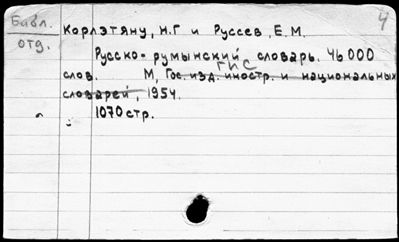 Библ. Корлэтяну, Н.Г и Руссев Е.М. 4
отд.
Русско-румынский словарь. 46000
ГИС
слов. М, Гос. изд. иностр. и национальных
словарей, 1954.
1070 стр.